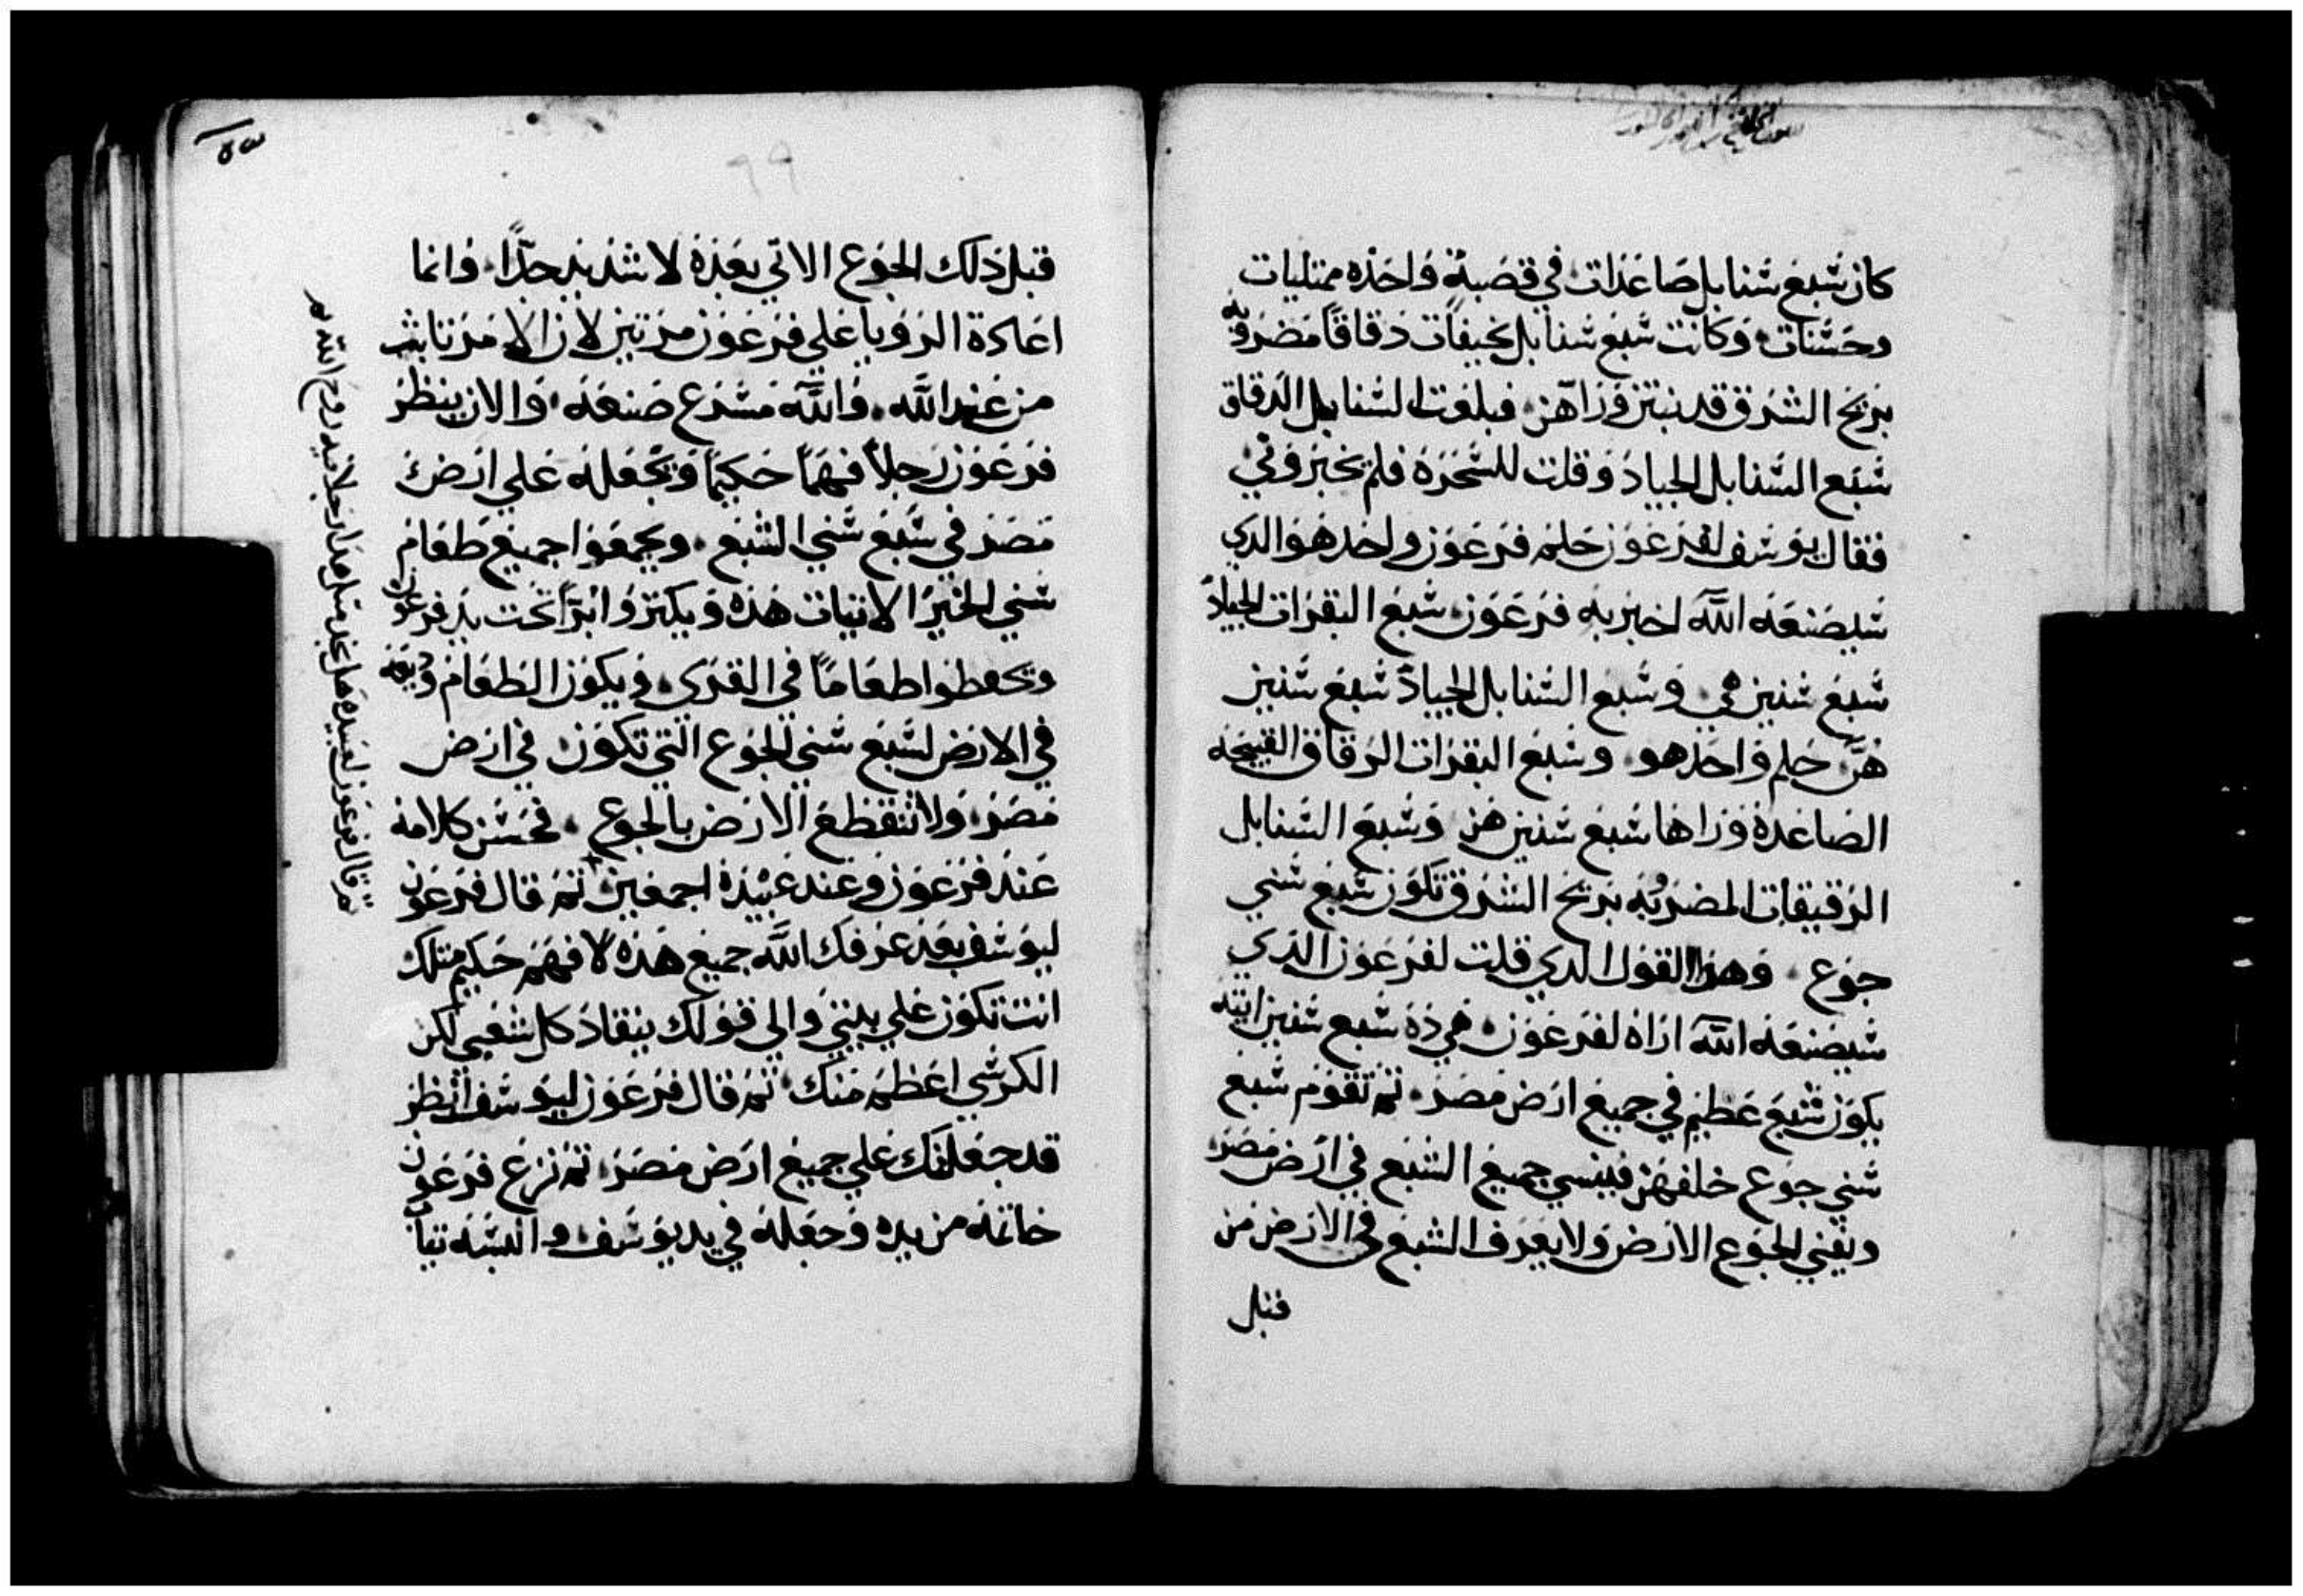 كان سبع سنابل صاعدات في قصبة واحده ممتليات
وحسنات وكانت سبع سنابل نحيفات دقاقا مضروبه
بريح الشرق قد نبتن وراهن فبلعت السنابل الدقاق
سبع السنابل الجياد وقلت للسحرة فلم يخبروني
فقال يوسف لفرعون حلم فرعون واحد هو الدي
سيصنعه الله اخبر به فرعون سبع البقرات الجياد
سبع سنين هي وسبع السنابل الجياد سبع سنين
هن حلم واحد هو وسبع البقرات الرقاق القبيحه
الصاعدة وراها سبع سنين هن وسبع السنابل
الرقيقات المضروبه بريح الشرق تكون سبع سني
جوع وهذا القول الدي قلت لفرعون الذي
سيصنعه الله اراه لفرعون هي ذه سبع سنين اتيه
يكون شبع عظيم في جميع ارض مصر ثم تقوم سبع
سني جوع خلفهن فينسي جميع الشبع في ارض مصر
ويفني الجوع الارض ولا يعرف الشبع في الارض من
قبل
٩٩
قبل ذلك الجوع الاتي بعده لاشديد جدا وانما
اعادة الرويا علي فرعون مرتين لان الامر ثابت
من عند الله والله مسرع صنعه والان ينظر
فرعون رجلا فهما حكيما ويجعله علي ارض
مصر في سبع سني الشبع ويجمعوا جميع طعام
سني الخير الاتيات هذه ويكنزوا برا تحت يد فرعون
ويحفظوا طعاما في القرى ويكون الطعام وديعه
في الارض لسبع سني الجوع التي تكون في ارض
مصر ولا تنقطع الارض بالجوع فحسن كلامه
عند فرعون وعند عبيده اجمعين ثم قال فرعون
ليوسف بعد عرفك الله جميع هذه لا فهم حكيم مثلك
انت تكون علي بيتي والي قولك ينقاد كل شعبي لكن
الكرسي اعظم منك ثم قال فرعون ليوسف انظر
قد جعلتك علي جميع ارض مصر ثم نزع فرعون
خاتمه من يده وجعله في يد يوسف والبسه ثيابا
ثم قال فرعون لعبيده هل نجد مثل هذا رجلا فيه روح الله